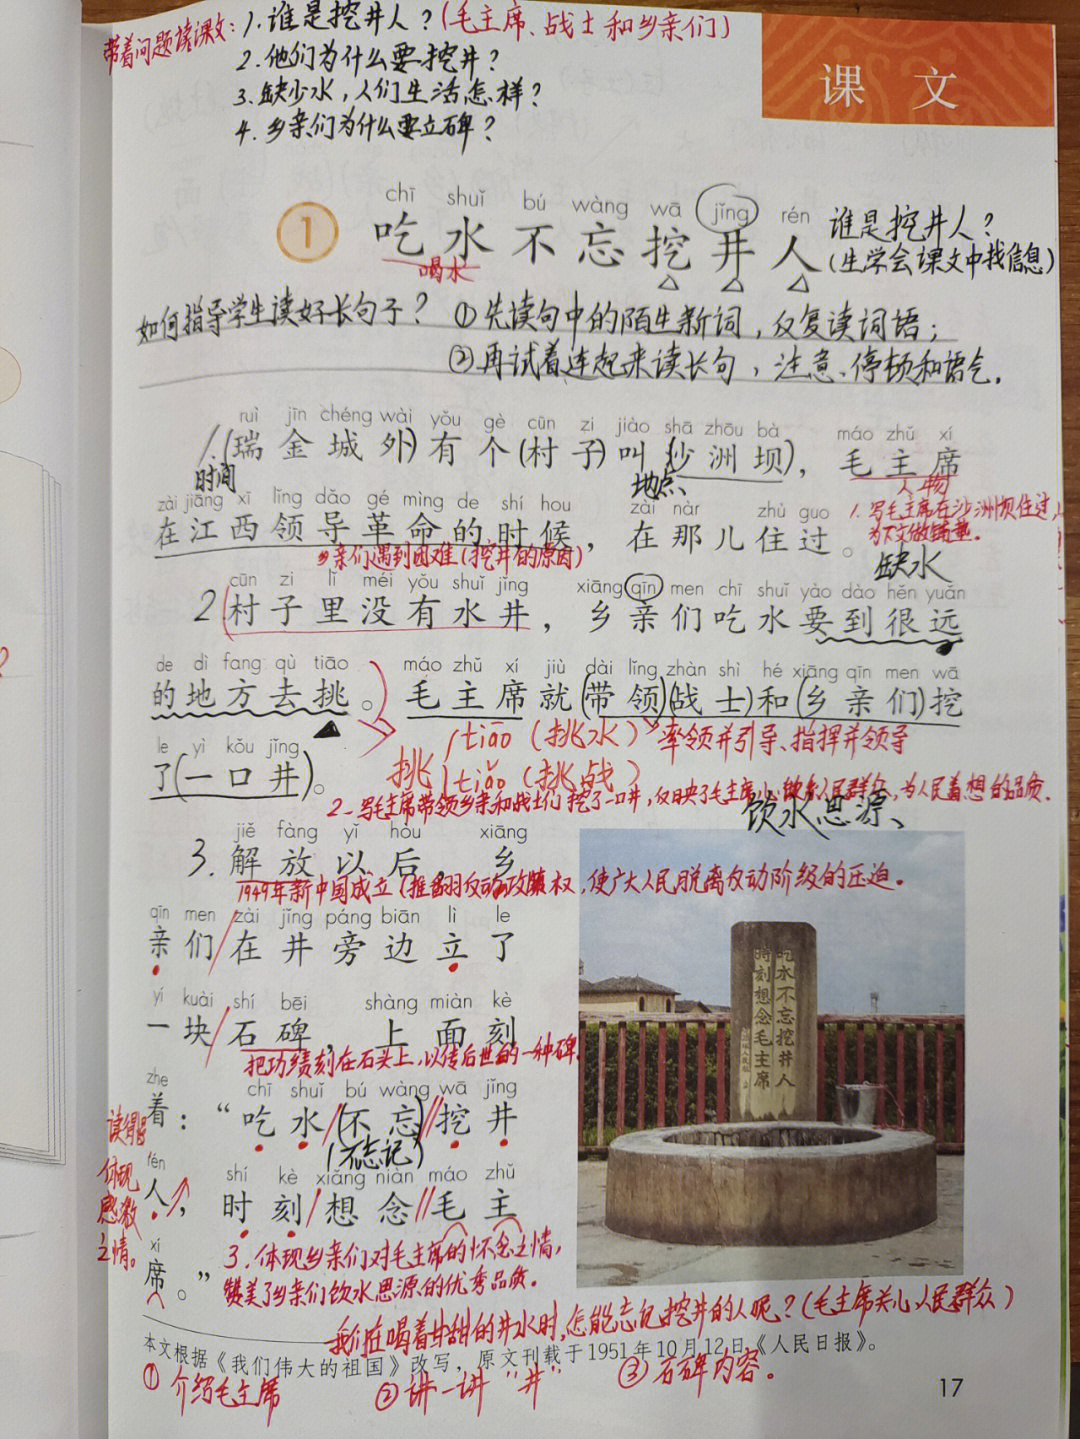 带着问题读课文：1.谁是挖井人？(毛主席、战士和乡亲们)
2.他们为什么要挖井？
3.缺少水，人们生活怎样？
4.乡亲们为什么要立碑？
课 文
chī shuǐ bú wàng wā jǐng rén
1 吃水不忘挖井人
喝水
谁是挖井人？
(生学会课文中找信息)
如何指导学生读好长句子？ ①先读句中的陌生新词，反复读词语；
②再试着连起来读长句，注意、停顿和语气。
ruì jīn chéng wài yǒu gè cūn zi jiào shā zhōu bà máo zhǔ xí
1.(瑞金城外)有个(村子)叫(沙洲坝)，毛主席
时间 地点 人物
zài jiāng xī lǐng dǎo gé mìng de shí hou zài nàr zhù guo
在江西领导革命的时候，在那儿住过。
1.写毛主席在沙洲坝住过，
为下文做铺垫。
乡亲们遇到困难(挖井的原因)
缺水
cūn zi lǐ méi yǒu shuǐ jǐng xiāng qīn men chī shuǐ yào dào hěn yuǎn
2(村子里没有水井，乡亲们吃水要到很远
de dì fang qù tiāo máo zhǔ xí jiù dài lǐng zhàn shì hé xiāng qīn men wā
的地方去挑。毛主席就(带领)(战士)和(乡亲们)挖
挑 tiāo (挑水) 率领并引导、指挥并领导
tiǎo (挑战)
le yì kǒu jǐng
了(一口井)。
2.写毛主席带领乡亲和战士们挖了一口井，反映了毛主席关心人民群众，为人民着想的品质.
饮水思源、
jiě fàng yǐ hòu xiāng
3.解放以后，乡
1949年新中国成立(推翻反动政权，使广大人民脱离反动阶级的压迫。
qīn men zài jǐng páng biān lì le
亲们/在井旁边立了
yí kuài shí bēi shàng miàn kè
一块/石碑，上面刻
把功绩刻在石头上，以传后世的一种碑
zhe chī shuǐ bú wàng wā jǐng
着：“吃水//(不忘)//挖井
(不忘记)
rén shí kè xiǎng niàn máo zhǔ
人，时刻/想念//毛主
xí
席。”
体现
感激
之情。
3.体现乡亲们对毛主席的怀念之情，
赞美了乡亲们饮水思源的优秀品质。
吃水不忘挖井人
時刻想念毛主席
我们在喝着甘甜的井水时，怎能忘记挖井的人呢？(毛主席关心人民群众)
本文根据《我们伟大的祖国》改写，原文刊载于1951年10月12日《人民日报》。
①介绍毛主席 ②讲一讲“井” ③石碑内容。
17